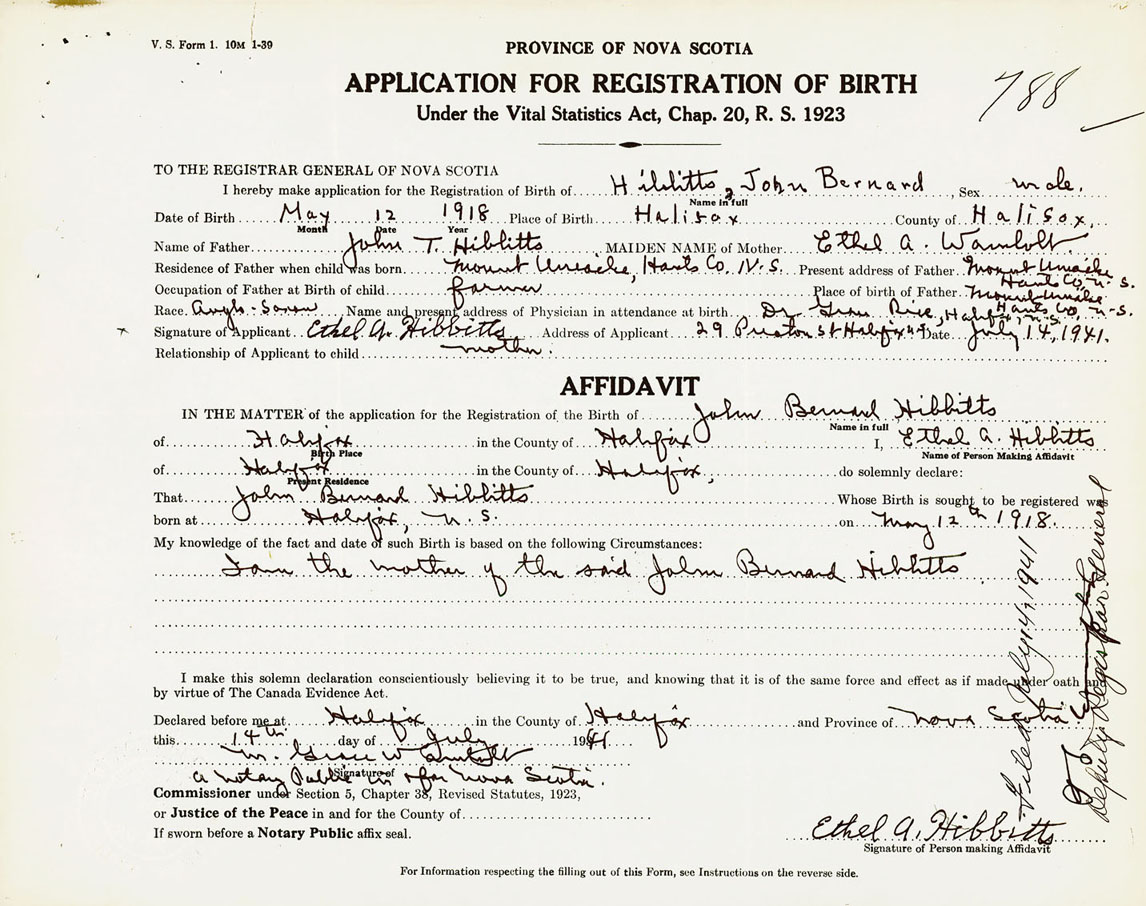 V. S. Form 1. 10M 1-39
PROVINCE OF NOVA SCOTIA
APPLICATION FOR REGISTRATION OF BIRTH
788
Under the Vital Statistics Act, Chap. 20, R. S. 1923
TO THE REGISTRAR GENERAL OF NOVA SCOTIA
I hereby make application for the Registration of Birth of Hibbitts, John Bernard, Sex male.
Name in full
Date of Birth May 12 1918 Place of Birth Halifax County of Halifax,
Month Date Year
Name of Father John T. Hibbitts MAIDEN NAME of Mother Ethel A. Wambolt
Residence of Father when child was born. Mount Uniacke, Hants Co. N. S. Present address of Father Mount Uniacke Hants Co. N. S.
Occupation of Father at Birth of child. farmer Place of birth of Father Mount Uniacke Hants Co. N. S.
Race Anglo-Saxon Name and present address of Physician in attendance at birth Dr. Rice, Halifax, N. S.
Signature of Applicant Ethel A. Hibbitts Address of Applicant 29 Preston St Halifax Date July 14, 1941.
Relationship of Applicant to child mother.
AFFIDAVIT
IN THE MATTER of the application for the Registration of the Birth of John Bernard Hibbitts
Name in full
of Halifax in the County of Halifax I, Ethel A. Hibbitts
Birth Place Name of Person Making Affidavit
of Halifax in the County of Halifax, do solemnly declare:
Present Residence
That John Bernard Hibbitts Whose Birth is sought to be registered was
born at Halifax, N. S. on May 12th 1918.
My knowledge of the fact and date of such Birth is based on the following Circumstances:
I am the mother of the said John Bernard Hibbitts
I make this solemn declaration conscientiously believing it to be true, and knowing that it is of the same force and effect as if made under oath and
by virtue of The Canada Evidence Act.
Declared before me at Halifax in the County of Halifax and Province of Nova Scotia
this 14th day of July 1941
M. Grace W
Signature of
a Notary Public in & for Nova Scotia.
Commissioner under Section 5, Chapter 38, Revised Statutes, 1923,
or Justice of the Peace in and for the County of
If sworn before a Notary Public affix seal.
Ethel A. Hibbitts
Signature of Person making Affidavit
For Information respecting the filling out of this Form, see Instructions on the reverse side.
Filed July 14, 1941
Deputy Registrar General